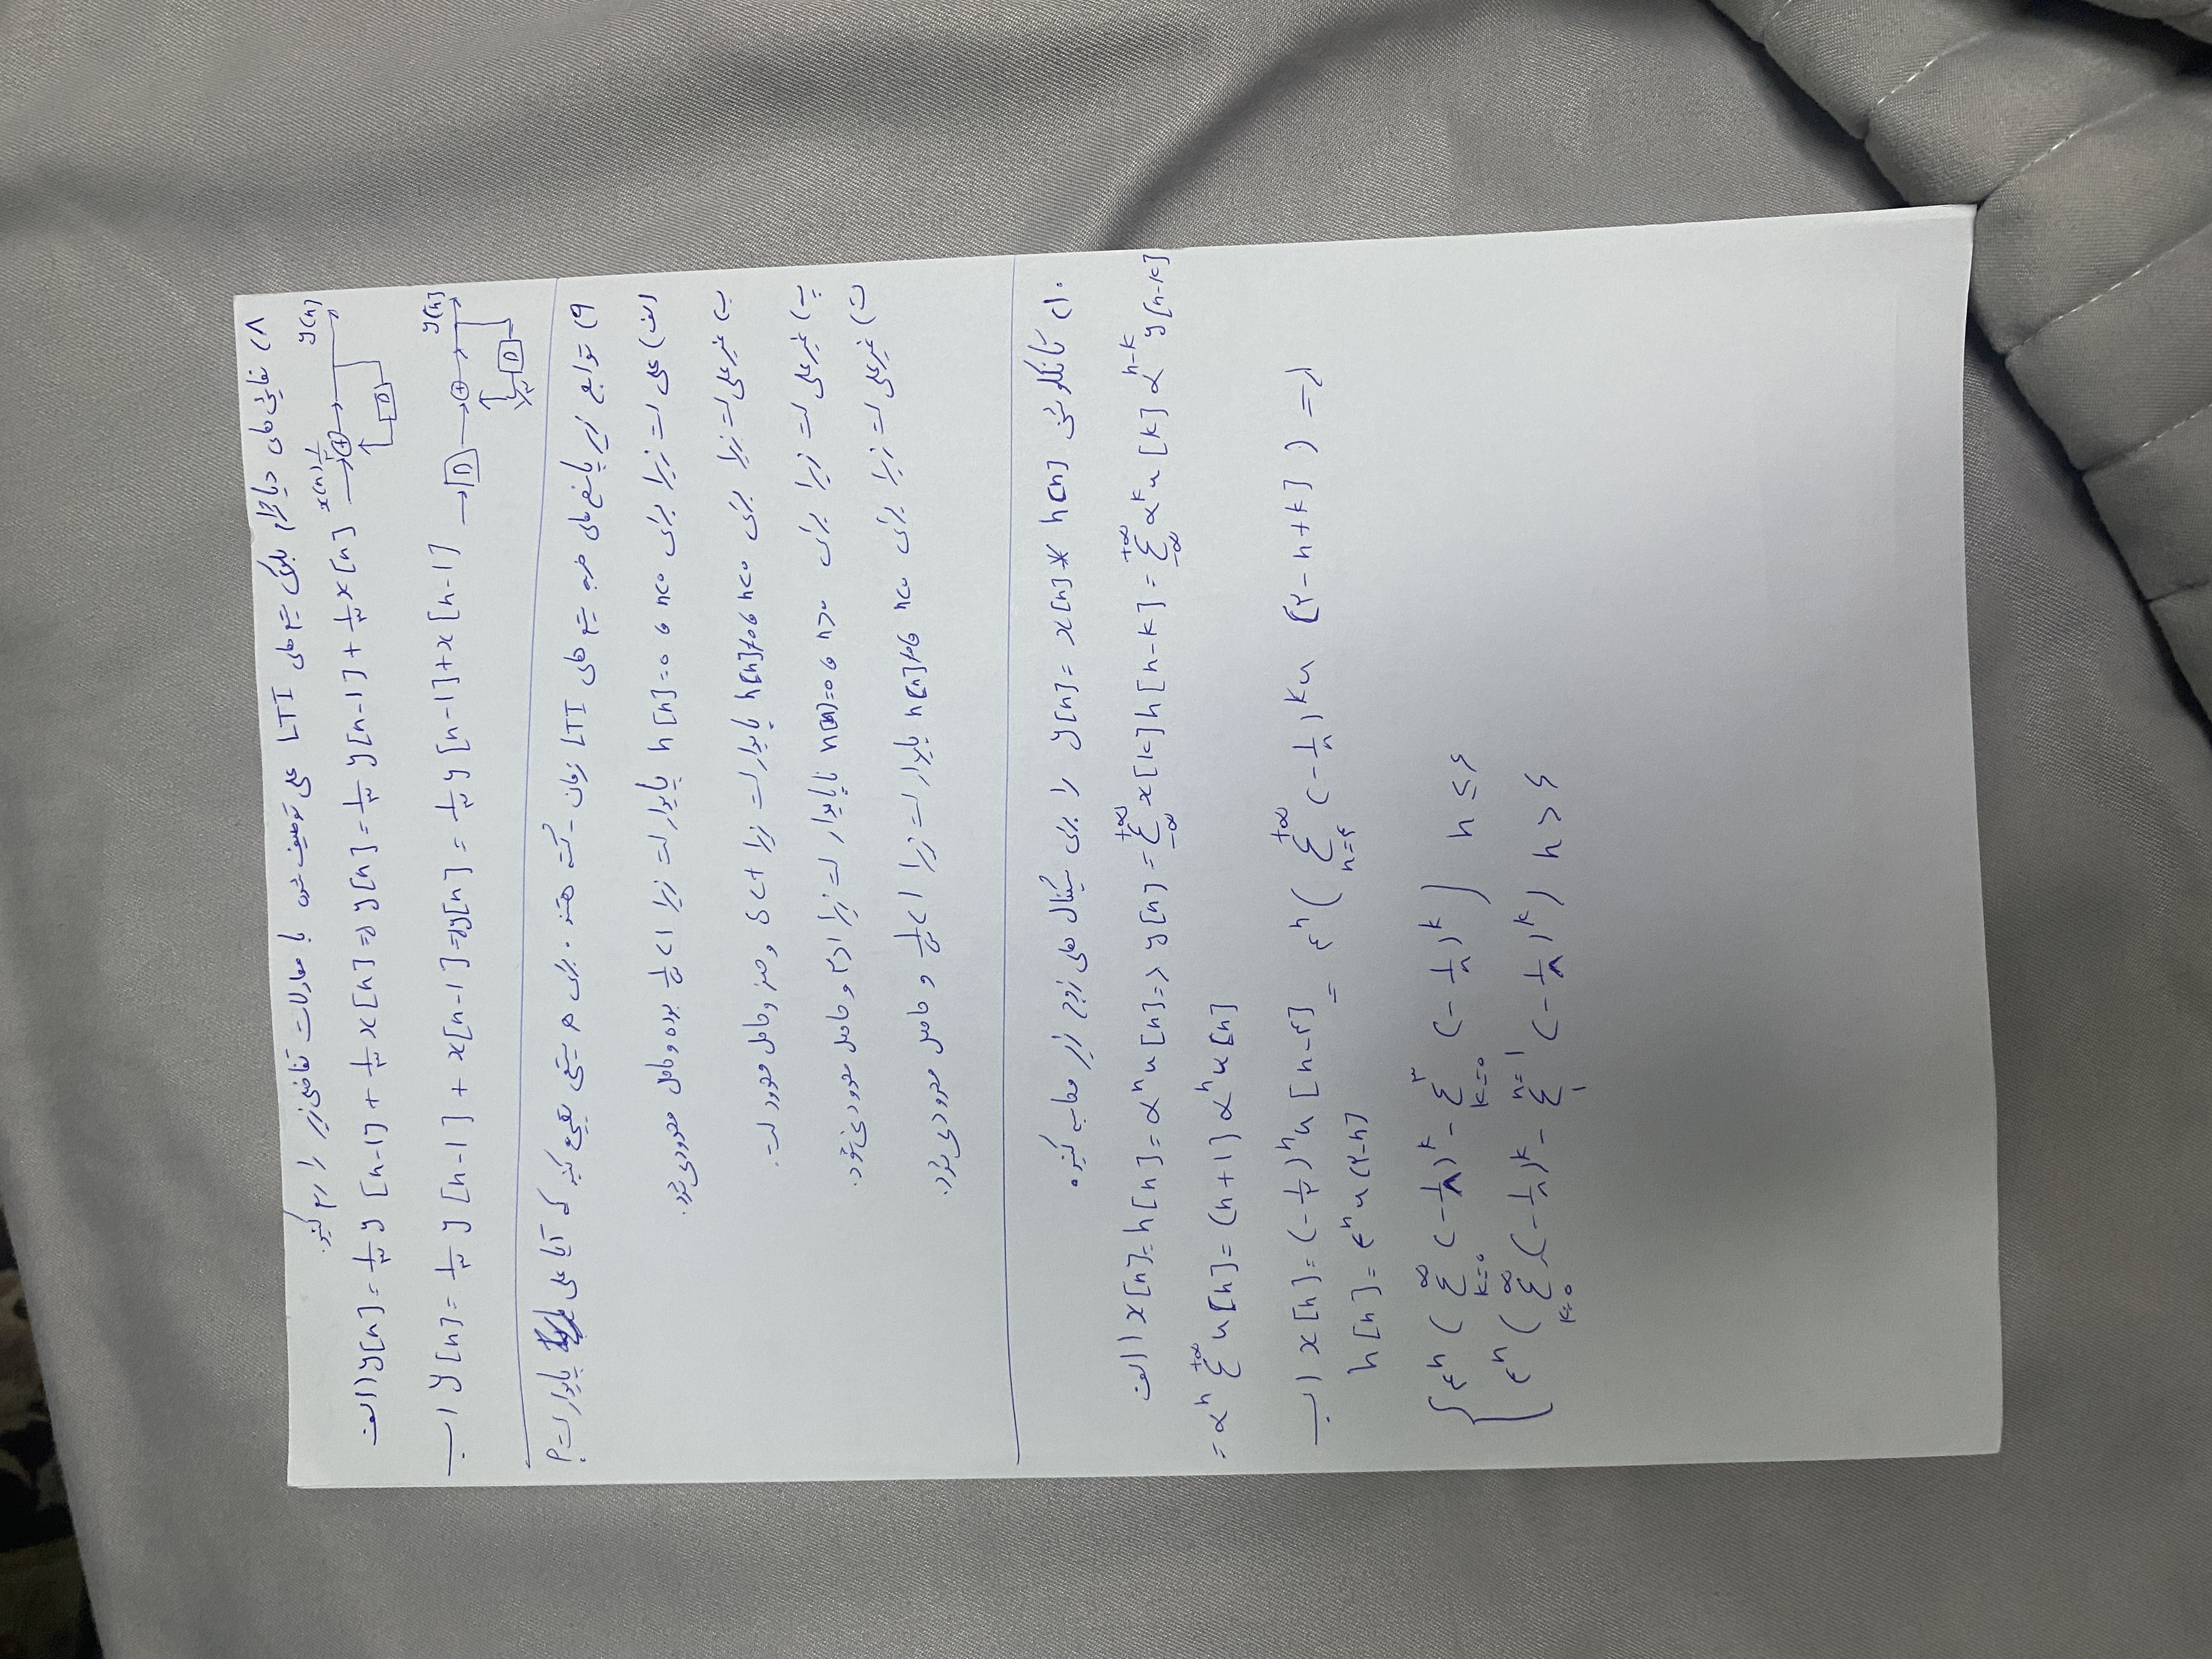 ۸) نمایش های دیاگرام بلوکی سیستم های LTI علی توصیف شده با معادلات تفاضلی زیر را رسم کنید.
الف) y[n] = ۱/۳ y [n-1] + ۱/۳ x[n] => y[n] = ۱/۳ y[n-1] + ۱/۳ x[n] x(n) + D y(n)
ب) y[n] = ۱/۳ y [n-1] + x[n-1] => y[n] = ۱/۳ y [n-1] + x [n-1] D + D ۱/۳ y[n]
۹) توابع زیر پاسخ های ضربه سیستم های LTI زمان - گسسته هستند. برای هر سیستمی تعیین کنید که آیا علی پایدار است؟
الف) علی است زیرا برای n<0 و h[n]=0 پایدار است زیرا ۱> بوده و حاصل محدود می شود.
ب) غیر علی است زیرا برای n<0 و h[n]≠0 پایدار است زیرا و حاصل محدود است.
پ) غیر علی است زیرا برای n>0 و h[n]=0 ناپایدار است زیرا و حاصل محدود نمی شود.
ت) غیر علی است زیرا برای n<0 و h[n]≠0 پایدار است زیرا ۱> و حاصل محدود می شود.
۱۰) کانولوشن y[n] = x[n] * h[n] را برای سیگنال های زوج زیر محاسبه کنید.
الف) x[n] = h[n] = α^n u[n] => y[n] = Σ_{-∞}^{+∞} x[k] h[n-k] = Σ_{-∞}^{+∞} α^k u[k] α^{n-k} y[n-k]
= α^n Σ^{+∞} u[n] = (n+1] α^n u[n]
ب) x[n] = (-۱/۲)^n u [n-۴] = ۴^n ( Σ_{n=۴}^{+∞} (-۱/۸)^k u [۲-n+k] ) =>
h[n] = ۴^n u[۲-n]
{ ۴^n ( Σ_{k=0}^{∞} (-۱/۸)^k - Σ_{k=0}^{۳} (-۱/۸)^k ) n ≤ ۶
۴^n ( Σ_{k=0}^{∞} (-۱/۸)^k - Σ_{۱}^{n=1} (-۱/۸)^k ) n > ۶